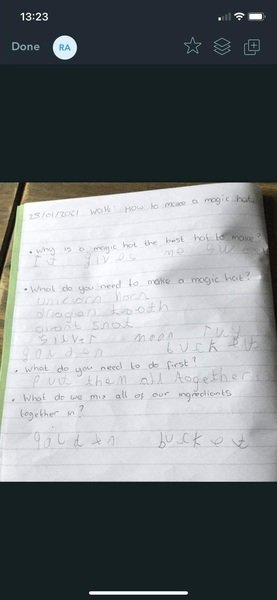 13:23
Done
RA
25/01/2021 Walt: How to make a magic hat.
• Why is a magic hat the best hat to make?
It gives me
• What do you need to make a magic hat?
unicorn horn
dragon tooth
giant snot
silver moon
golden bucket
• What do you need to do first?
Put them all together
• What do we mix all of our ingredients
together in?
golden bucket